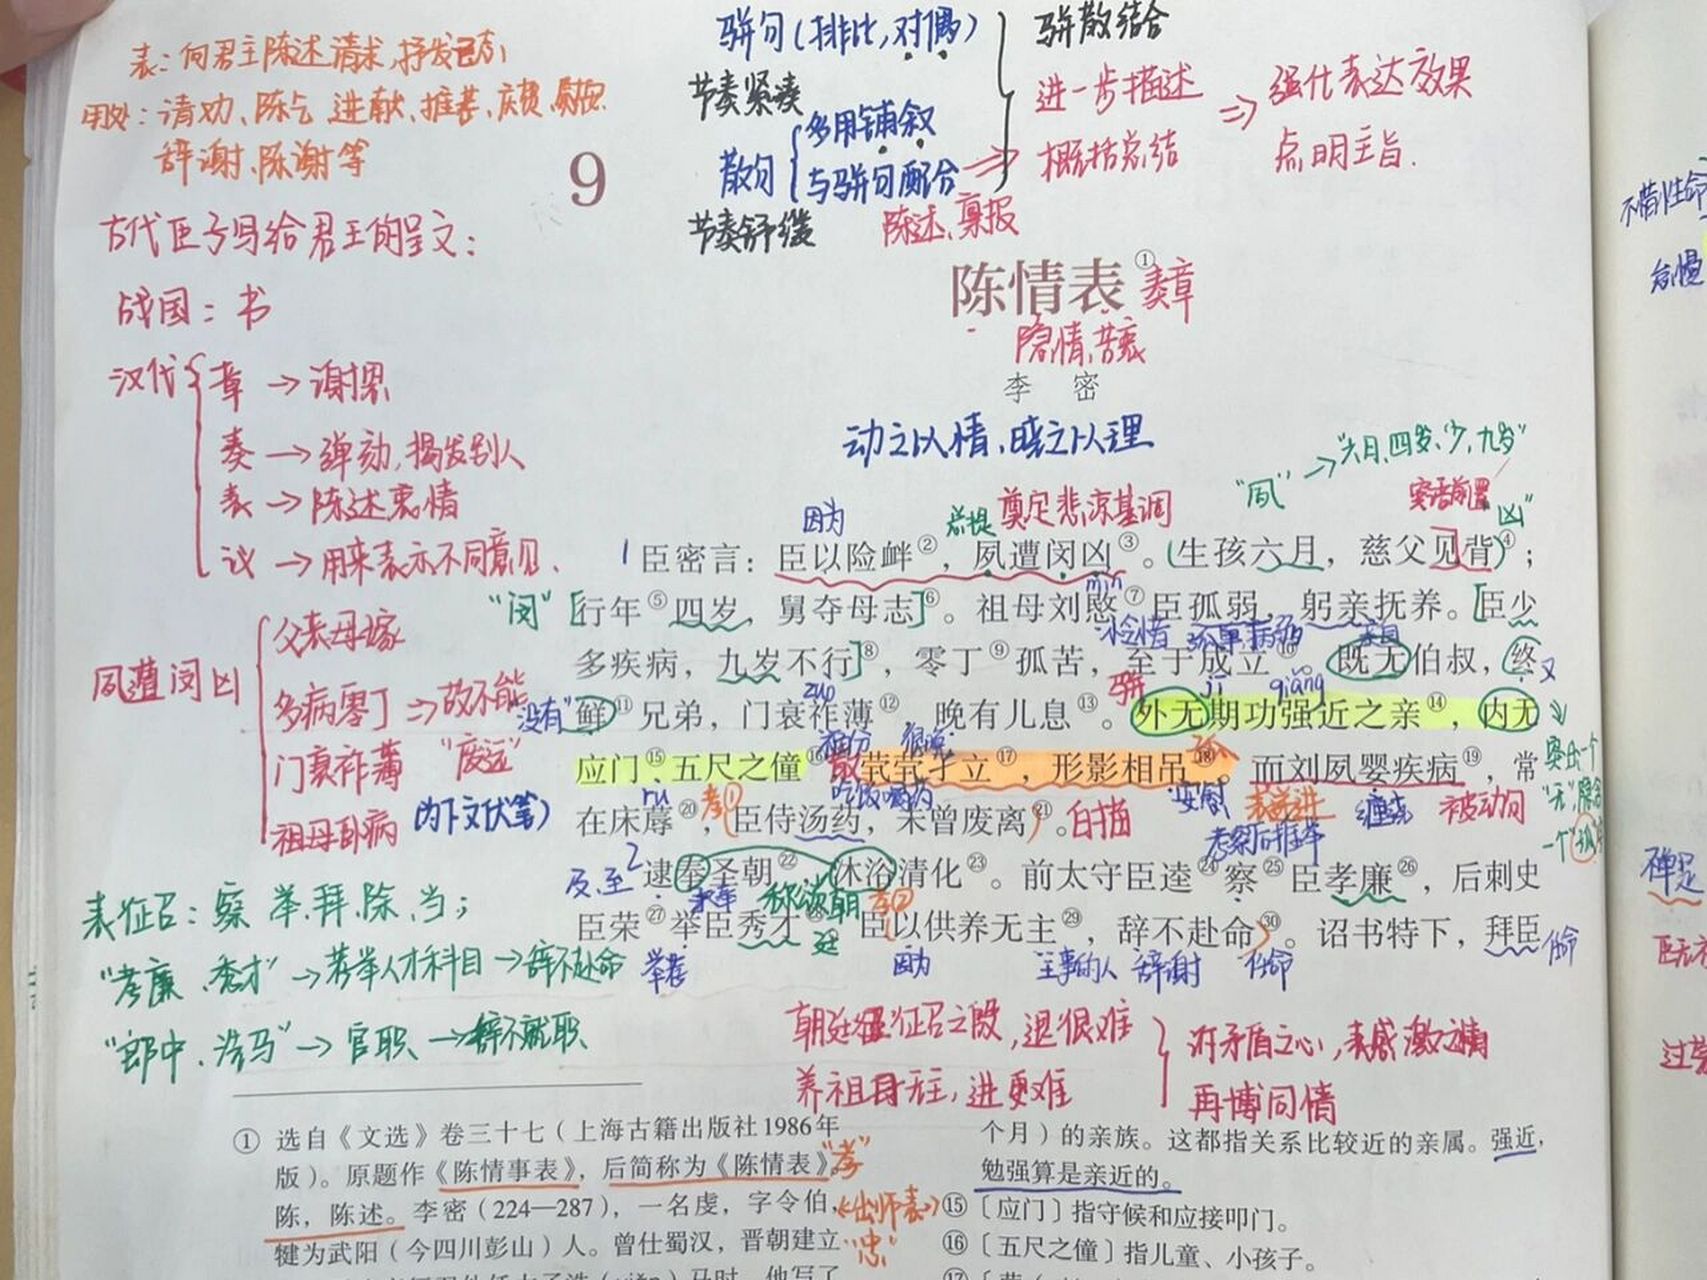 表：向君主陈述请求,抒发己志
用处：请功、陈乞、进献、推荐、庆贺、慰安
辞谢、陈谢等
9
古代臣子写给君王的呈文：
战国：书
汉代
章→谢恩
奏→弹劾,揭发别人
表→陈述衷情
议→用来表示不同意见.
骈句(排比,对偶)
节奏紧凑
散句
多用铺叙
与骈句配合
节奏舒缓
陈述、禀报
骈散结合
进一步描述
概括总结
⇒ 强化表达效果
点明主旨.
陈情表① 表章
隐情,苦衷
李 密
动之以情,晓之以理
"夙"→"六月、四岁、少、九岁"
因为
总提
奠定悲凉基调
宾语前置
"凶"
1 臣密言：臣以险衅②，夙遭闵凶③。(生孩六月，慈父见背)④；
mǐn
"闵"[行年⑤四岁，舅夺母志]⑥。祖母刘愍⑦臣孤弱，躬亲抚养。[臣少
怜惜 孤单,病弱 亲自
多疾病，九岁不行]⑧，零丁⑨孤苦，至于成立⑩。既无伯叔，终
又
zuò 骈 jī qiǎng
"没有"鲜⑪兄弟，门衰祚薄⑫，晚有儿息⑬。外无期功强近之亲⑭，内无
福分 很晚
应门⑮五尺之僮⑯，散茕茕孑立⑰，形影相吊⑱。而刘夙婴疾病⑲，常
rù 孝① 吃饭喝药 安慰 表递进 缠绕 被动句
突出一个
"无"
一个"孤"
在床蓐⑳，臣侍汤药，未曾废离㉑。白描
考察后推举
及,至
2 逮奉圣朝㉒，沐浴清化㉓。前太守臣逵㉔察㉕臣孝廉㉖，后刺史
承奉 称颂朝廷 孝②
臣荣㉗举臣秀才㉘。臣以供养无主㉙，辞不赴命㉚。诏书特下，拜臣
举荐 因为 主事的人 辞谢 任命
夙遭闵凶
父丧母嫁
多病零丁⇒故不能
门衰祚薄 "废远"
祖母卧病
(为下文伏笔)
表征召：察、举、拜、除、当；
"孝廉、秀才"→荐举人才科目→辞不赴命
"郎中、洗马"→官职→辞不就职
朝廷征召之殷,退很难
养祖母无主,进更难
诉矛盾之心,表感激之情
再博同情
① 选自《文选》卷三十七（上海古籍出版社1986年
版）。原题作《陈情事表》，后简称为《陈情表》。
"孝"
陈，陈述。李密（224—287），一名虔，字令伯，
《出师表》
犍为武阳（今四川彭山）人。曾仕蜀汉，晋朝建立
"忠"
个月）的亲族。这都指关系比较近的亲属。强近，
勉强算是亲近的。
⑮〔应门〕指守候和应接叩门。
⑯〔五尺之僮〕指儿童、小孩子。
不惜性命
怠慢